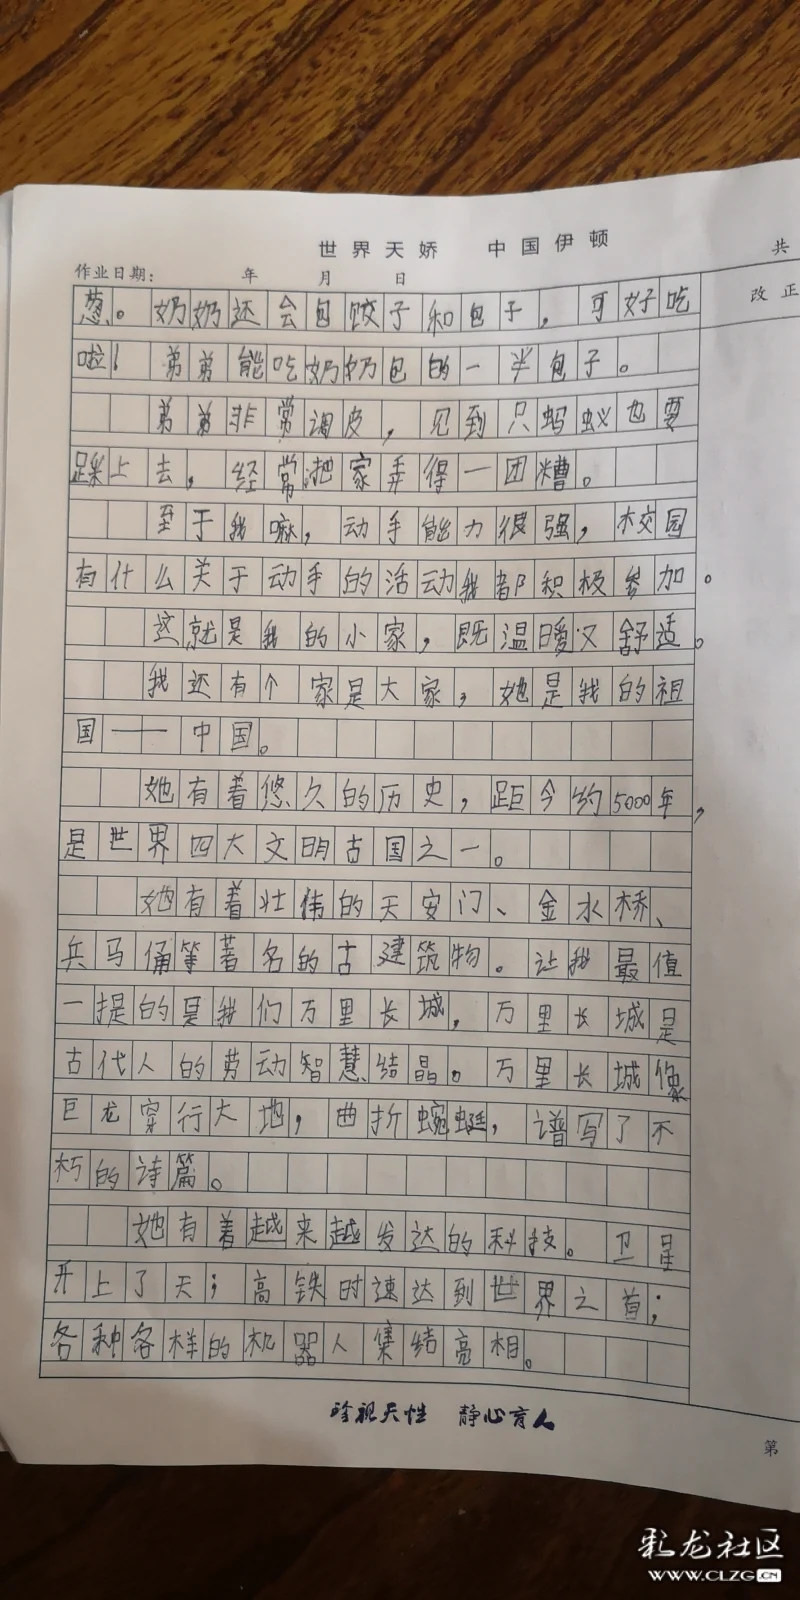 世界天娇 中国伊顿
共
作业日期: 年 月 日
改正
葱。奶奶还会包饺子和包子，可好吃
啦！弟弟能吃奶奶包的一半包子。
弟弟非常调皮，见到只蚂蚁也要
踩上去，经常把家弄得一团糟。
至于我嘛，动手能力很强，校园
有什么关于动手的活动我都积极参加。
这就是我的小家，既温暖又舒适。
我还有个家是大家，她是我的祖
国——中国。
她有着悠久的历史，距今约5000年，
是世界四大文明古国之一。
她有着壮伟的天安门、金水桥、
兵马俑等著名的古建筑物。让我最值
一提的是我们万里长城，万里长城是
古代人的劳动智慧结晶。万里长城像
巨龙穿行大地，曲折蜿蜒，谱写了不
朽的诗篇。
她有着越来越发达的科技。卫星
开上了天；高铁时速达到世界之首；
各种各样的机器人集结亮相。
珍视天性 静心育人
第
彩龙社区
WWW.CLZG.CN